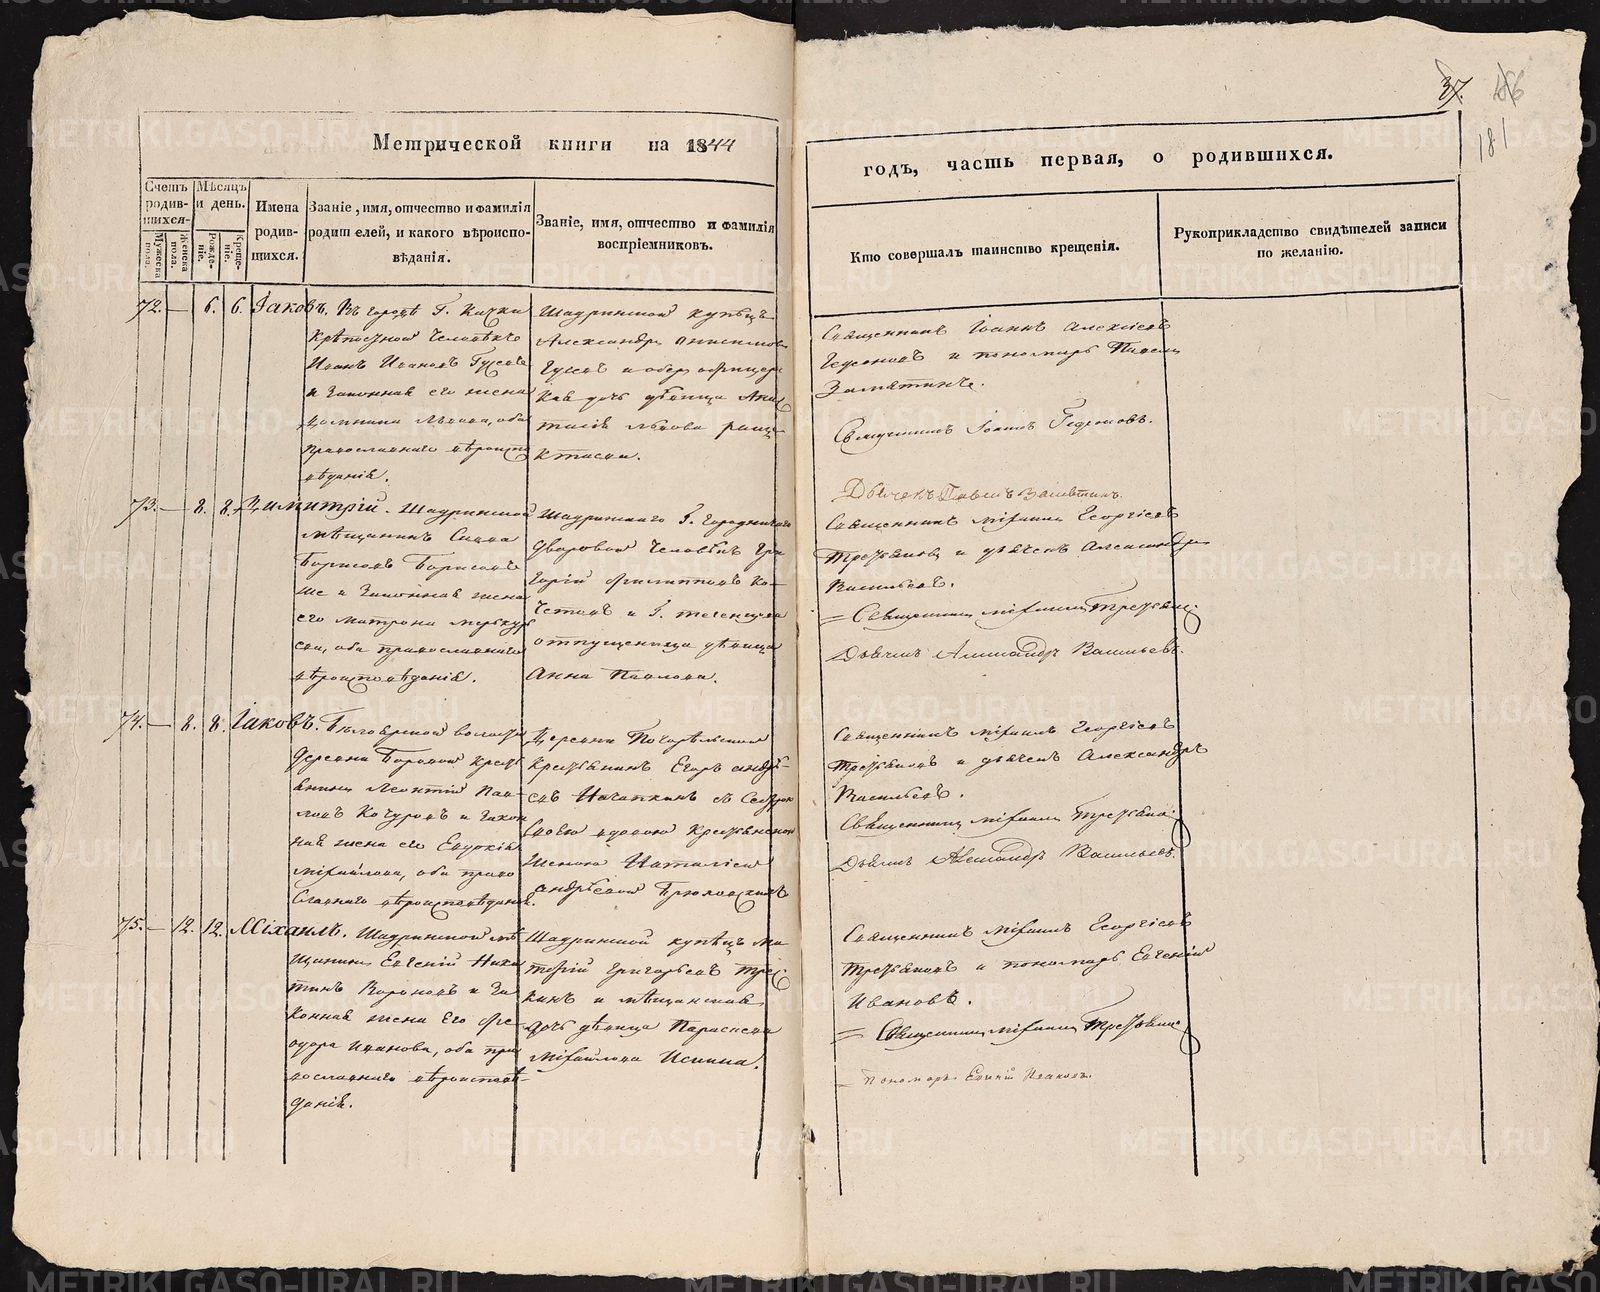 37. 86
181
Метрической книги на 1844
годъ, часть первая, о родившихся.
Счетъ родив-шихся.
Мѣсяцъ и день.
Мужеска пола.
Женска пола.
Рожде-нія.
Креще-нія.
Имена родив-шихся.
Званіе, имя, отчество и фамилія родителей, и какого вѣроиспо-вѣданія.
Званіе, имя, отчество и фамилія воспріемниковъ.
Кто совершалъ таинство крещенія.
Рукоприкладство свидѣтелей записи по желанію.
72. — 6. 6. Іаковъ. Въ городѣ Г.
крѣпостной человѣкъ
Иванъ Ивановъ Гусевъ
и законная его жена
Домникія Львова, оба
православнаго вѣроиспо
вѣданія.
Шадринской купецъ
Александръ Онисимовъ
Гусевъ и оберъ офицерс
кая дочь дѣвица Анас
тасія Львова
Священникъ Іоаннъ Алексіевъ
Гедеоновъ и пономарь Павелъ
Замятинъ.
Священникъ Іоаннъ Гедеоновъ.
Дьячекъ Павелъ Замятинъ.
73. — 8. 8. Димитрій. Шадринской
мѣщанинъ Савва
Борисовъ
же и законная жена
его Матрона Меркурь
ева, оба православнаго
вѣроисповѣданія.
Шадринскаго Г. Городничаго
дворовой человѣкъ Гри
горій Филипповъ Ко-
четовъ и Г.
отпущенница дѣвица
Анна Павлова.
Священникъ Міхаилъ Георгіевъ
Третьяковъ и дьячекъ Александръ
Васильевъ.
= Священникъ Міхаилъ Третьяковъ.
Дьячекъ Александръ Васильевъ.
74. — 8. 8. Іаковъ. Бѣлоярской волости
деревни Боровой кресть
янинъ Леонтій Пав-
ловъ Кочуровъ и закон
ная жена его Евдокія
Міхайлова, оба право
славнаго вѣроисповѣданія.
Деревни Погорѣльской
крестьянинъ Егоръ Андрѣ-
евъ
своею вдовою крестьянскою
женкою Наталіею
Андрѣевою
Священникъ Міхаилъ Георгіевъ
Третьяковъ и дьячекъ Александръ
Васильевъ.
Священникъ Міхаилъ Третьяковъ
Дьячекъ Александръ Васильевъ.
75. — 12. 12. Міхаилъ. Шадринской мѣ
щанинъ Евгеній Ники
тинъ Вороновъ и за
конная жена его Фе-
одора Иванова, оба пра
вославнаго вѣроисповѣ-
данія.
Шадринской купецъ Ма
тфій Григорьевъ
и мѣщанская
дочь дѣвица Параскева
Міхайлова
Священникъ Міхаилъ Георгіевъ
Третьяковъ и пономарь Евгеній
Ивановъ.
= Священникъ Міхаилъ Третьяковъ
Пономарь Евгеній Ивановъ.
METRIKI.GASO-URAL.RU